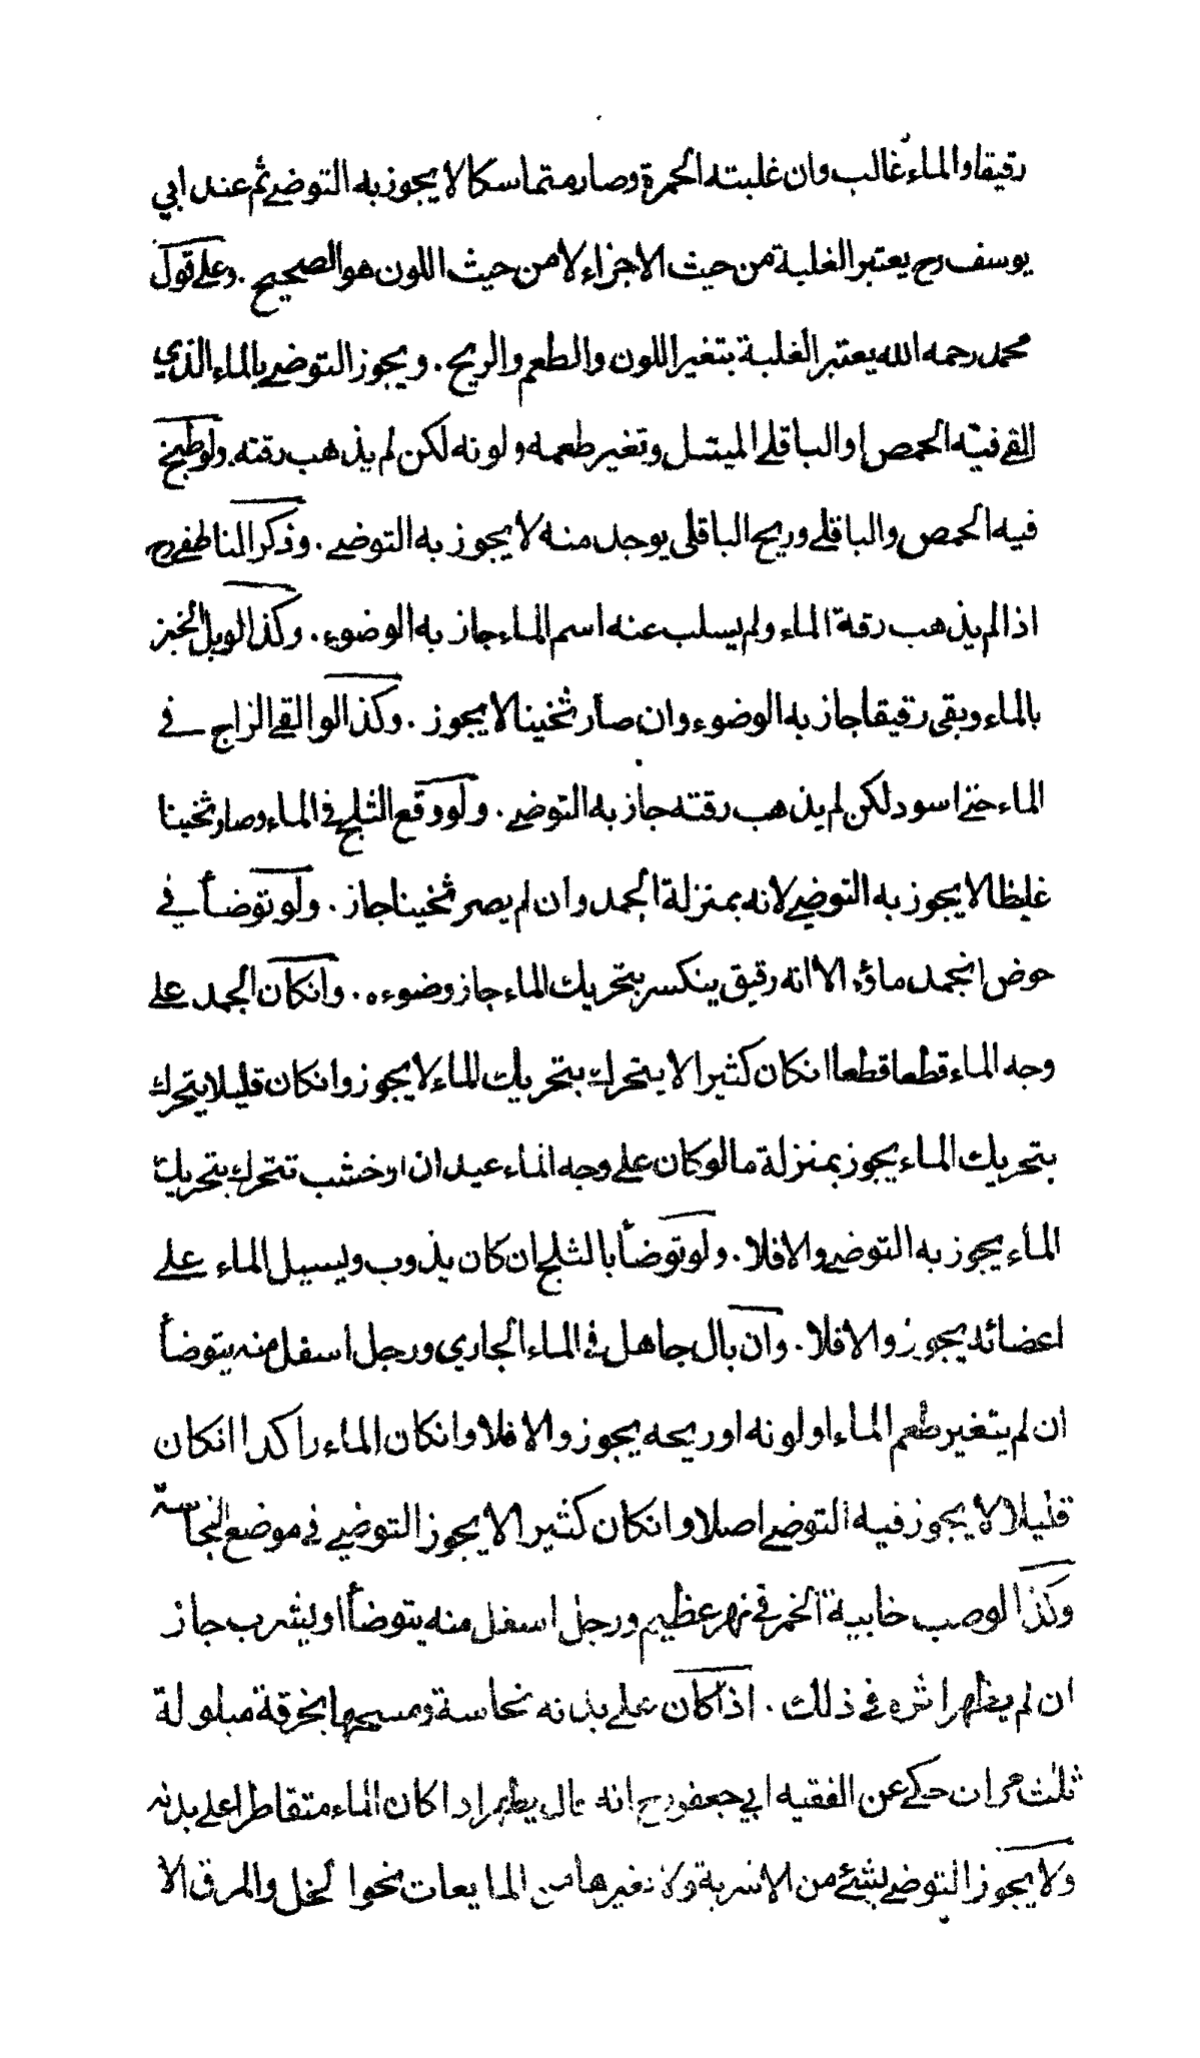 رقيقا والماء غالب وان غلبته الحمرة وصار متماسكا لا يجوز به التوضي ثم عند ابي
يوسف رح يعتبر الغلبة من حيث الاجزاء لا من حيث اللون هو الصحيح . وعلى قول
محمد رحمه الله يعتبر الغلبة بتغير اللون والطعم والريح . ويجوز التوضي بالماء الذي
القى فيه الحمص او الباقلى المبتل وتغير طعمه ولونه لكن لم يذهب رقته . ولو طبخ
فيه الحمص والباقلى وريح الباقلى يوجد منه لا يجوز به التوضي . وذكر الناطفي رح
اذا لم يذهب رقة الماء ولم يسلب عنه اسم الماء جاز به الوضوء . وكذا لو بل الخبز
بالماء وبقى رقيقا جاز به الوضوء وان صار ثخينا لا يجوز . وكذا لو القى الزاج في
الماء حتى اسود لكن لم يذهب رقته جاز به التوضي . ولو وقع الثلج في الماء وصار ثخينا
غليظا لا يجوز به التوضي لانه بمنزلة الجمد وان لم يصر ثخينا جاز . ولو توضأ في
حوض انجمد ماؤه الا انه رقيق ينكسر بتحريك الماء جاز وضوءه . وانكان الجمد على
وجه الماء قطعا قطعا انكان كثيرا لا يتحرك بتحريك الماء لا يجوز وانكان قليلا يتحرك
بتحريك الماء يجوز بمنزلة مالوكان على وجه الماء عيدان او خشب تتحرك بتحريك
الماء يجوز به التوضي والا فلا . ولو توضأ بالثلج ان كان يذوب ويسيل الماء على
اعضائه يجوز والا فلا . وان بال جاهل في الماء الجاري ورجل اسفل منه يتوضأ
ان لم يتغير طعم الماء او لونه او ريحه يجوز والا فلا وانكان الماء راكدا انكان
قليلا لا يجوز فيه التوضي اصلا وانكان كثيرا لا يجوز التوضي في موضع النجاسة
وكذا لو صب خابية الخمر في نهر عظيم ورجل اسفل منه يتوضأ او يشرب جاز
ان لم يظهر اثره في ذلك . اذا كان على بدنه نجاسة ومسحها بخرقة مبلولة
ثلث مرات حكى عن الفقيه ابي جعفر رح انه قال يطهر اذا كان الماء متقاطرا على بدنه
ولا يجوز التوضي بشئ من الاشربة ولا بغيرها من المايعات نحو الخل والمرق الا